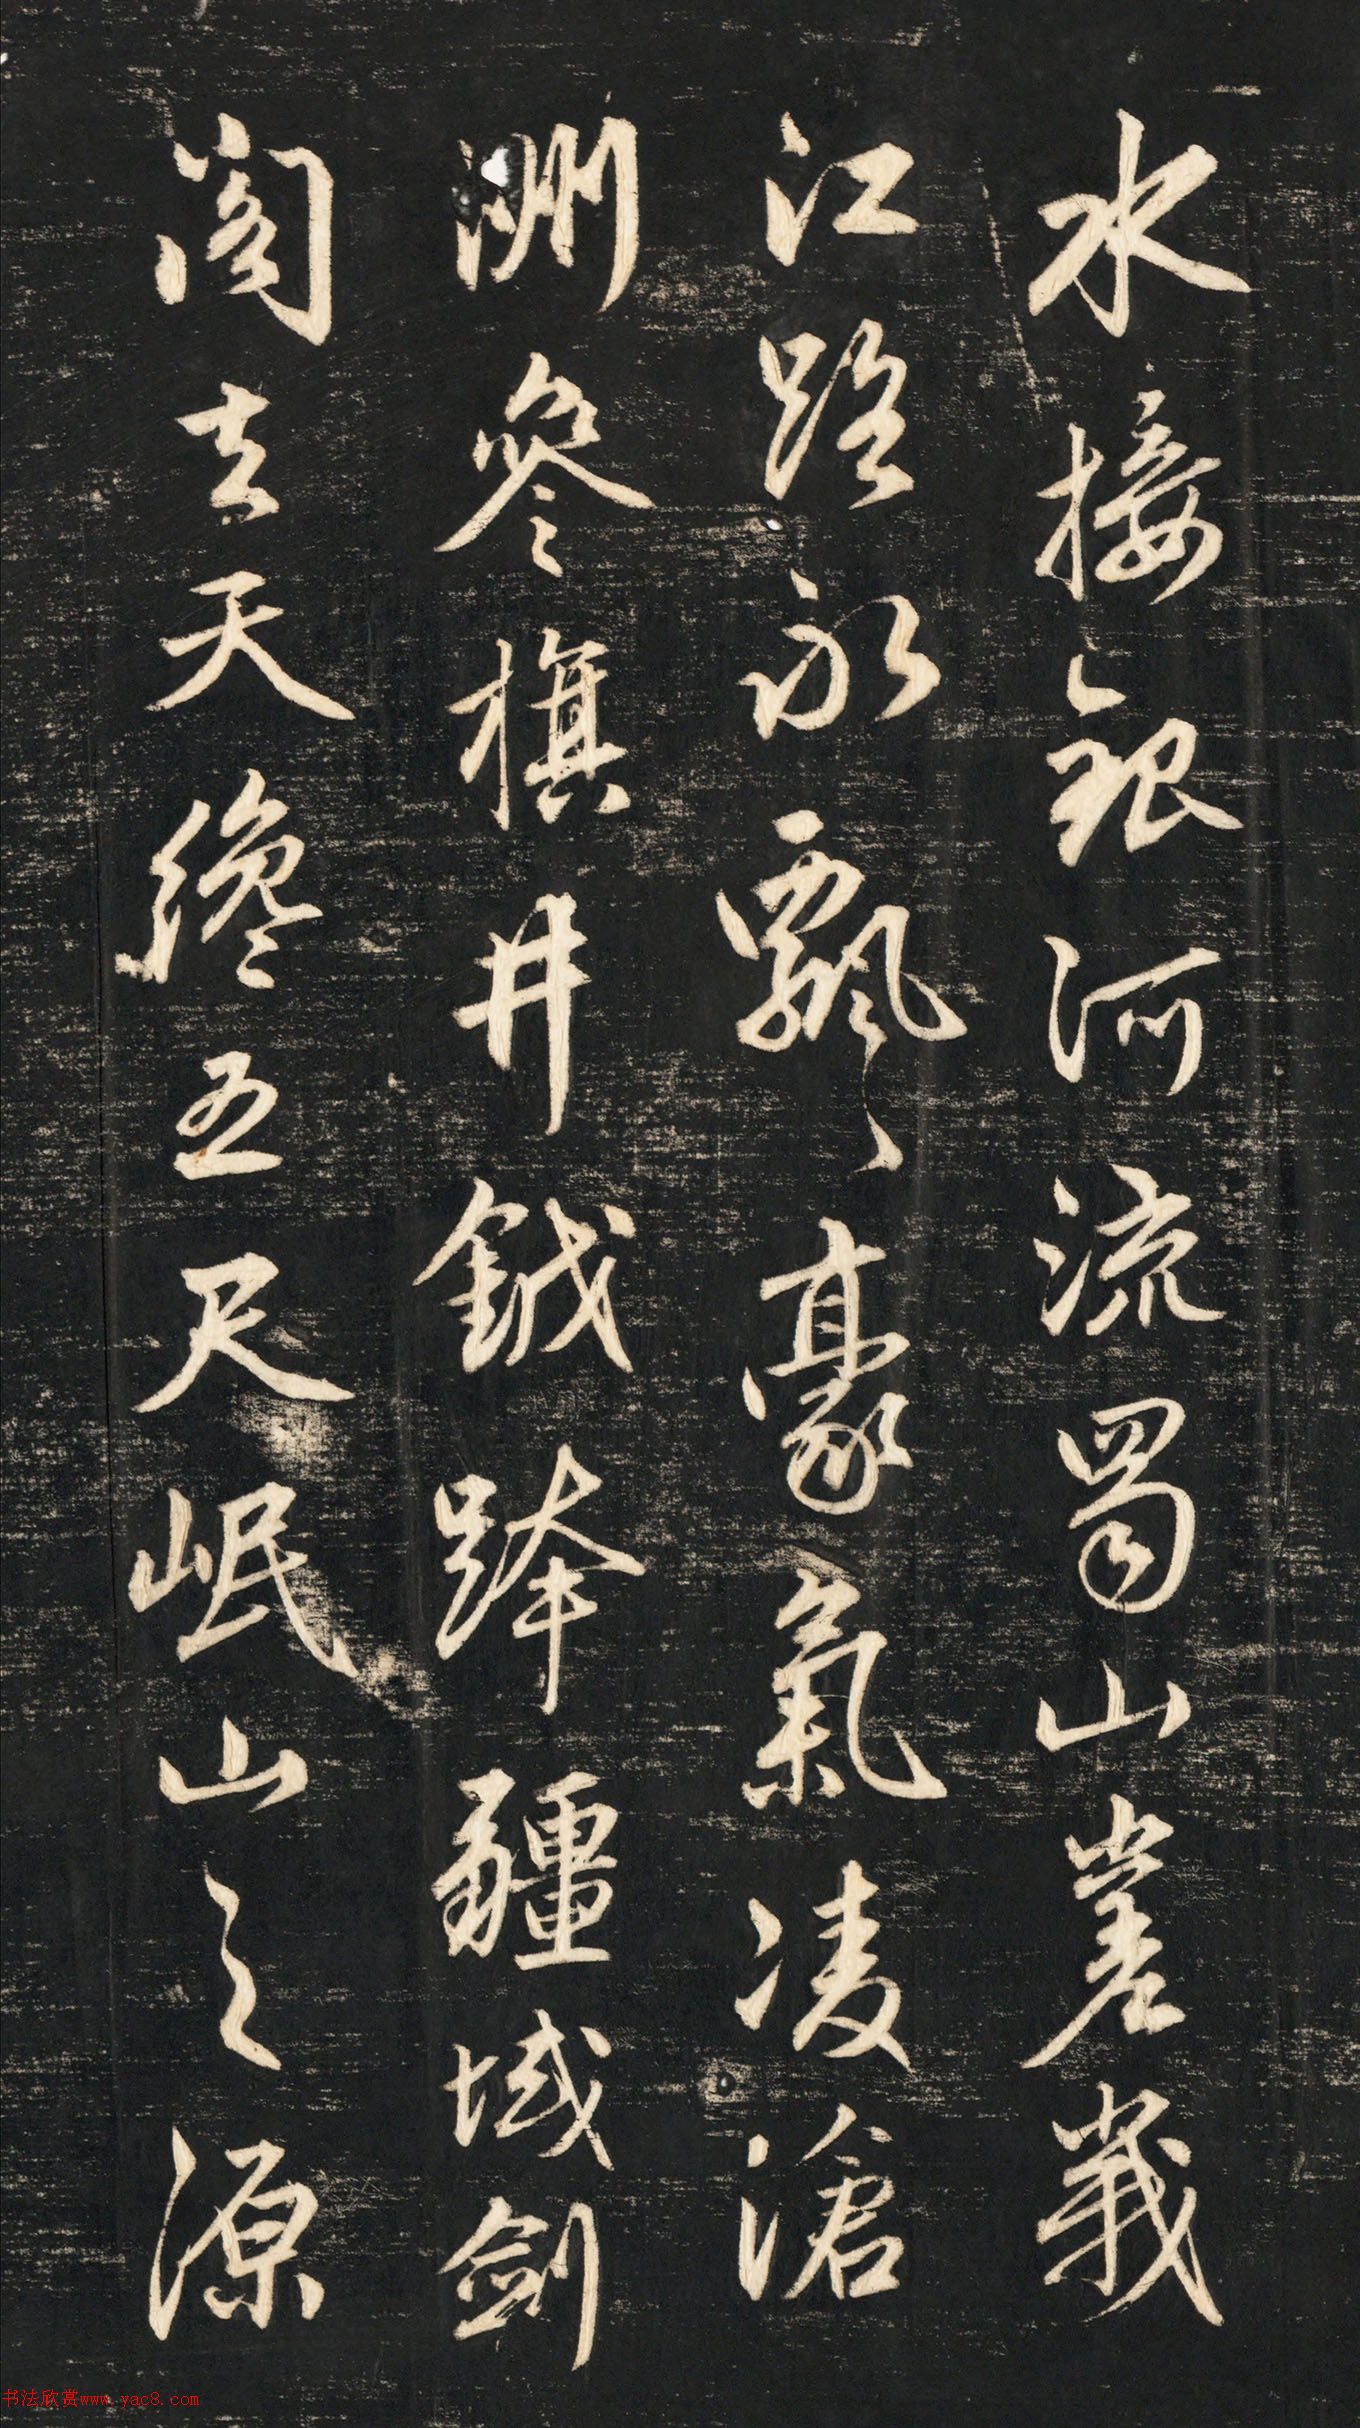 水接銀河流蜀山嵳峩
江路永飄〻豪氣凌滄
洲參旗井鉞跨疆域劍
閣去天纔五尺岷山之源
书法欣赏www.yac8.com